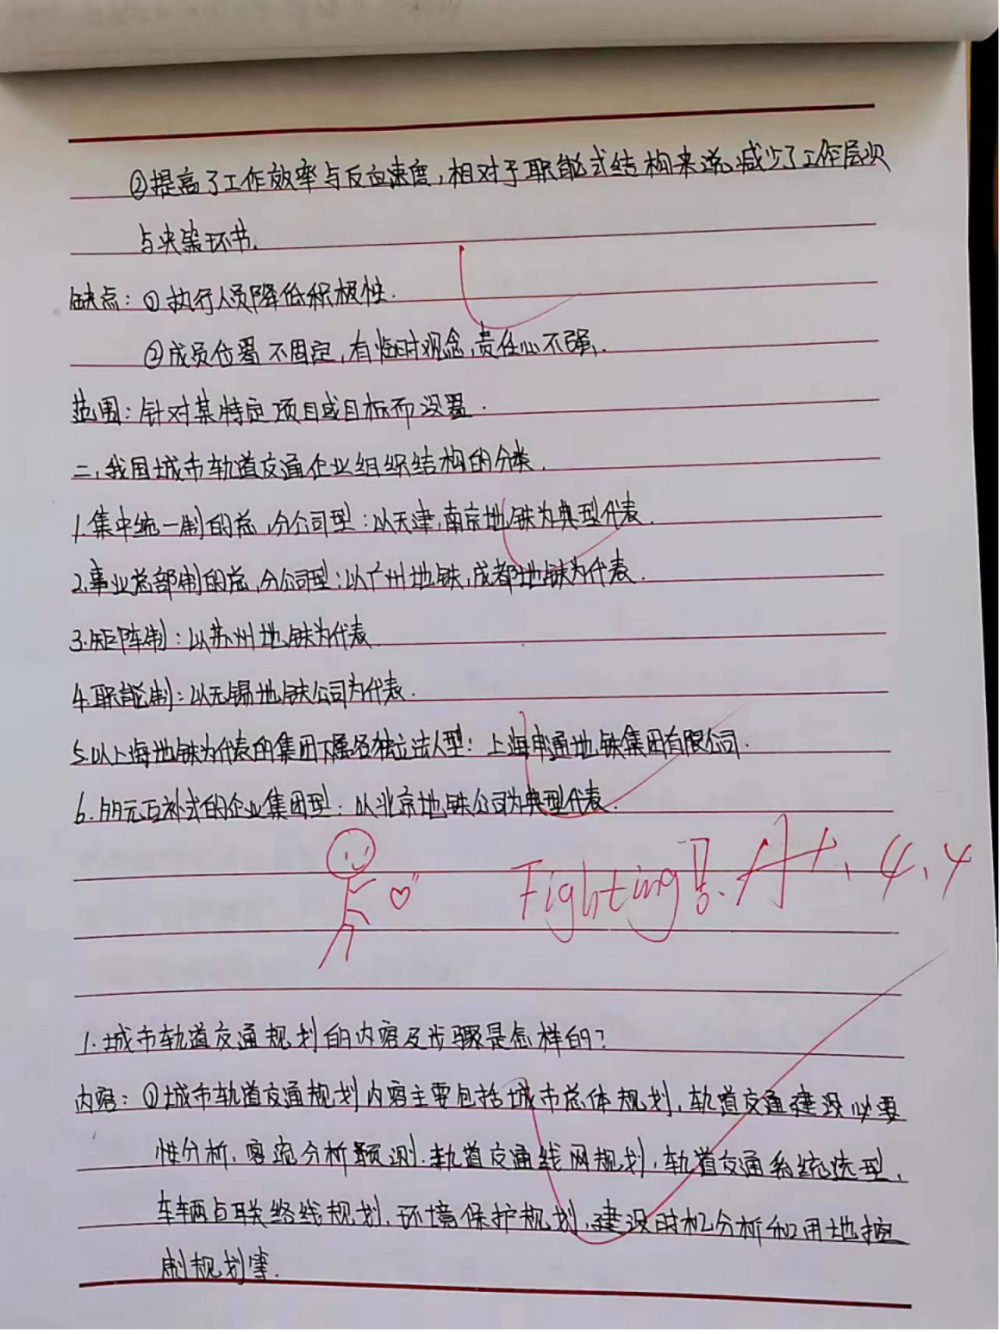 ②提高了工作效率与反应速度,相对于职能式结构来说,减少了工作层次
与决策环节.
缺点:①执行人员降低积极性.
②成员位置不固定,有临时观念,责任心不强.
范围:针对某特定项目或目标而设置.
二,我国城市轨道交通企业组织结构的分类.
1.集中统一制的总,分公司型:以天津,南京地铁为典型代表.
2.事业总部制的总,分公司型:以广州地铁,成都地铁为代表.
3.矩阵制:以苏州地铁为代表
4.职能制:以无锡地铁公司为代表.
5.以上海地铁为代表的集团下属各独立法人型:上海申通地铁集团有限公司.
6.多元互补式的企业集团型:以北京地铁公司为典型代表.
Fighting!! A+. 4.4
1.城市轨道交通规划的内容及步骤是怎样的?
内容:①城市轨道交通规划内容主要包括城市总体规划,轨道交通建设必要
性分析,客流分析预测.轨道交通线网规划,轨道交通系统选型,
车辆与联络线规划,环境保护规划,建设时机分析和用地控
制规划等.